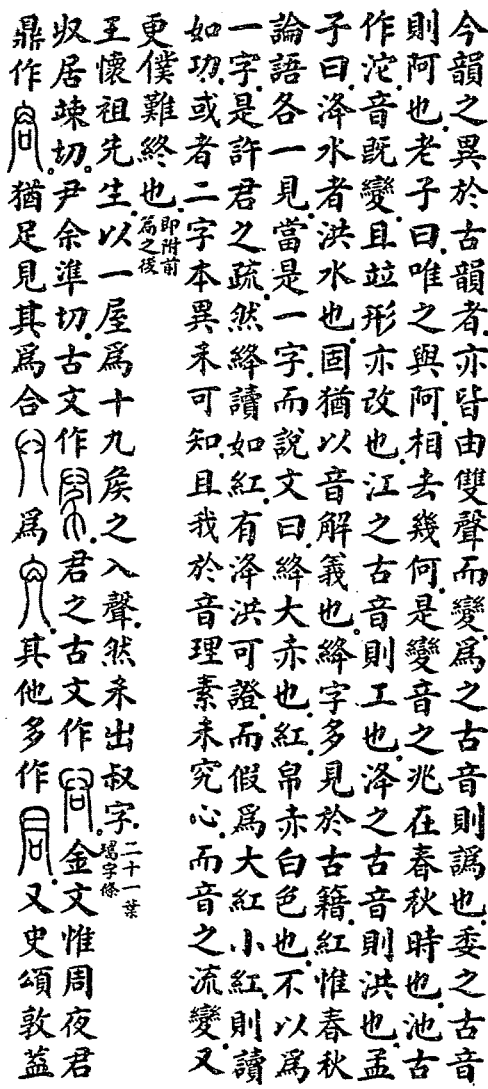 今韻之異於古韻者亦皆由雙聲而變爲之古音則譌也委之古音
則阿也老子曰唯之與阿相去幾何是變音之兆在春秋時也池古
作沱音旣變且竝形亦改也江之古音則工也洚之古音則洪也孟
子曰洚水者洪水也固猶以音解義也絳字多見於古籍紅惟春秋
論語各一見當是一字而說文曰絳大赤也紅帛赤白色也不以爲
一字是許君之疏然絳讀如紅有洚洪可證而假爲大紅小紅則讀
如功或者二字本異未可知且我於音理素未究心而音之流變又
更僕難終也
即附前
篇之後
王懷祖先生以一屋爲十九矦之入聲然未出叔字
二十一葉
瑒字條
収居竦切尹余準切古文作 君之古文作 金文惟周夜君
鼎作 猶足見其爲合 爲 其他多作 又史頌敦葢